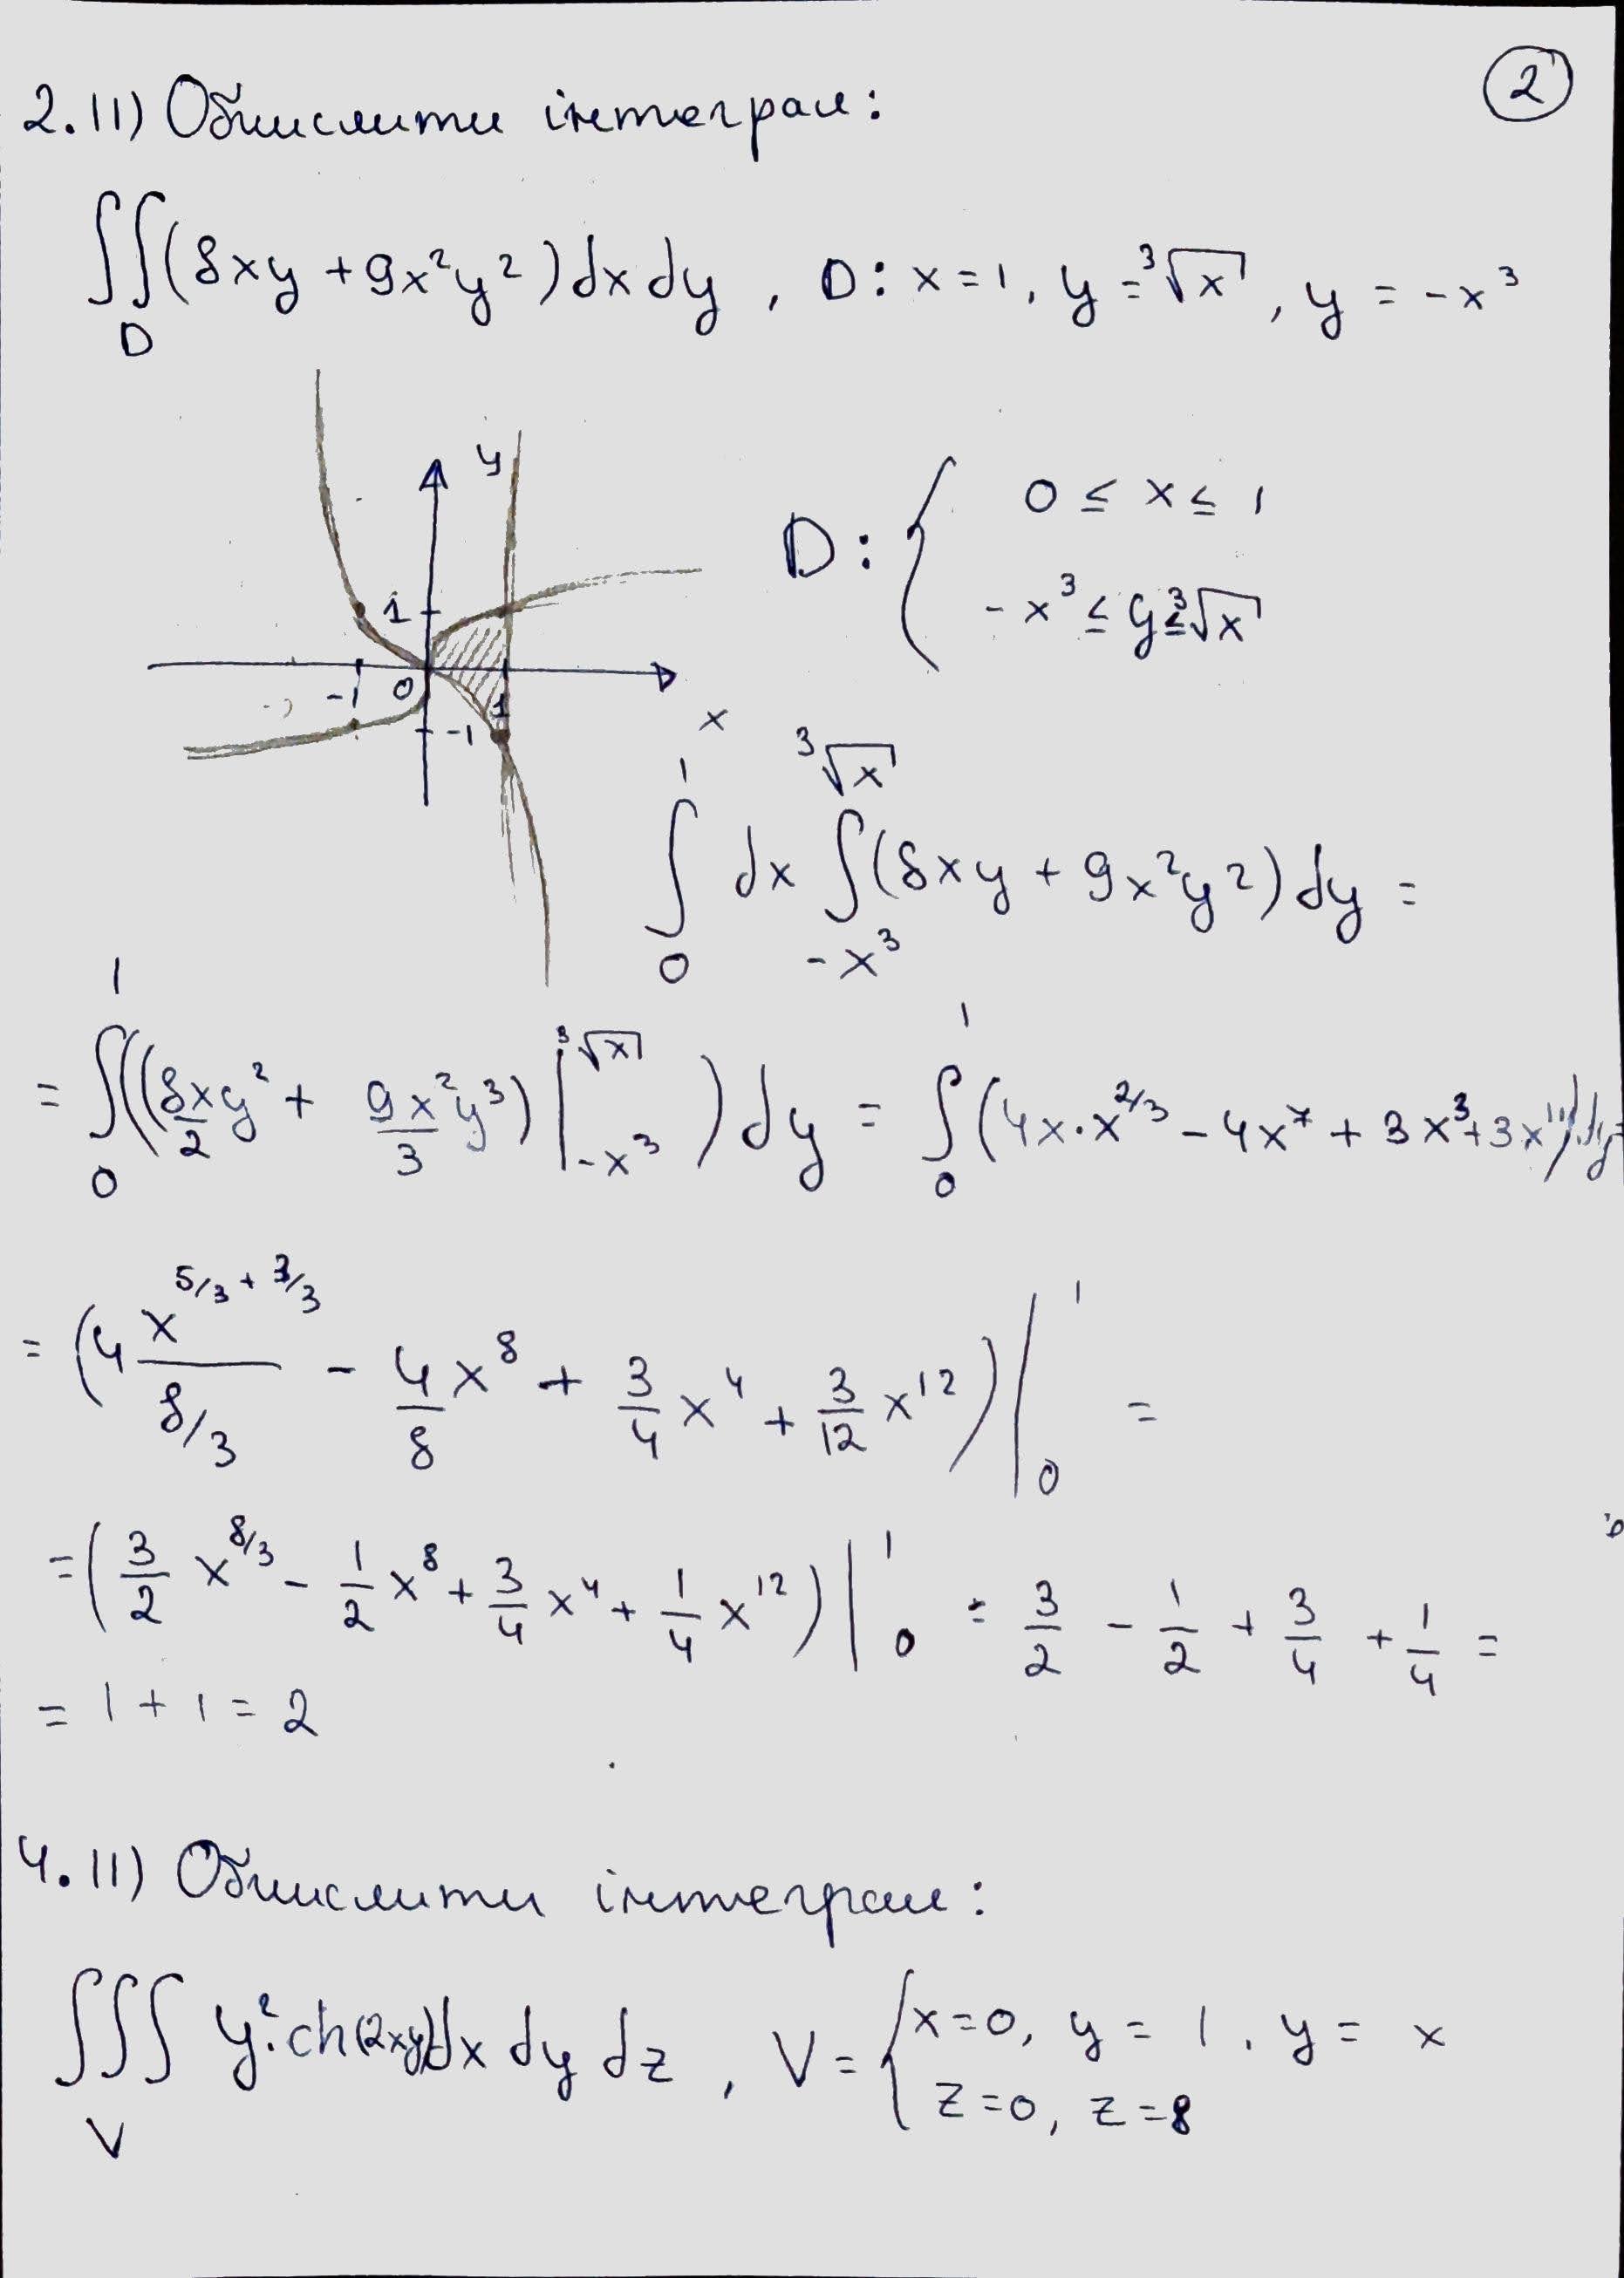 2
2.11) Обчислити інтеграл:
∬_D (8xy + 9x²y²) dx dy, D: x = 1, y = ³√x, y = -x³
y
1
-1 0 1
-1
x
D: { 0 ≤ x ≤ 1
-x³ ≤ y ≤ ³√x
∫₀¹ dx ∫_{-x³}^{³√x} (8xy + 9x²y²) dy =
= ∫₀¹ ((8x/2 y² + 9x²/3 y³) |_{-x³}^{³√x}) dy = ∫₀¹ (4x·x^{2/3} - 4x⁷ + 3x³ + 3x¹¹) dy
= (4 x^{5/3 + 3/3} / (8/3) - 4/8 x⁸ + 3/4 x⁴ + 3/12 x¹²) |₀¹ =
= (3/2 x^{8/3} - 1/2 x⁸ + 3/4 x⁴ + 1/4 x¹²) |₀¹ = 3/2 - 1/2 + 3/4 + 1/4 =
= 1 + 1 = 2
4.11) Обчислити інтеграл:
∭_V y²·ch(2xy) dx dy dz, V = { x = 0, y = 1, y = x
z = 0, z = 8